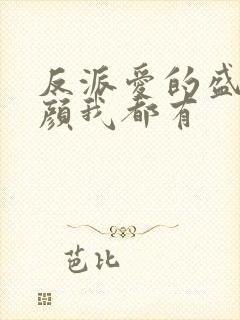 反派爱的盛
颜我都有
芭比